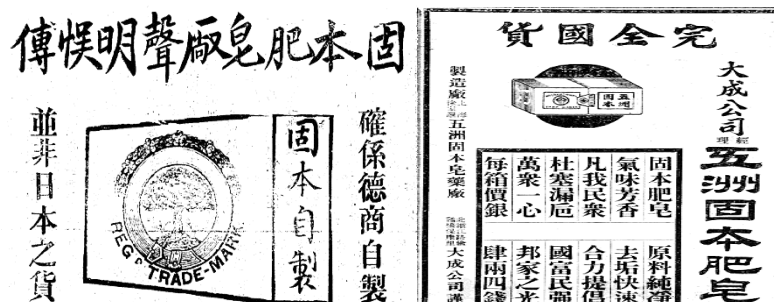 固本肥皂廠聲明悞傳
確係德商自製
固本自製
REGD TRADE-MARK
並非日本之貨
完全國貨
大成公司經理
五洲固本肥皂
五洲固本
固本肥皂 原料純
氣味芳香 去垢快速
凡我民衆 合力提倡
杜塞漏巵 國富民強
萬衆一心 邦家之光
每箱價銀 肆兩四錢
製造廠 五洲固本皂藥廠 大成公司謹